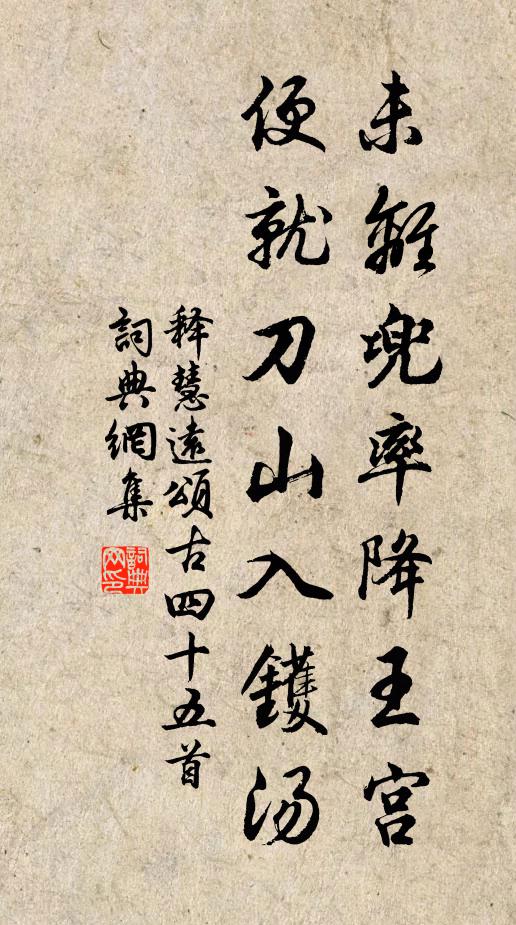 未離兜率降王宫
便就刀山入鑊汤
释慧遠頌古四十五首
詞典網集
詞典网印